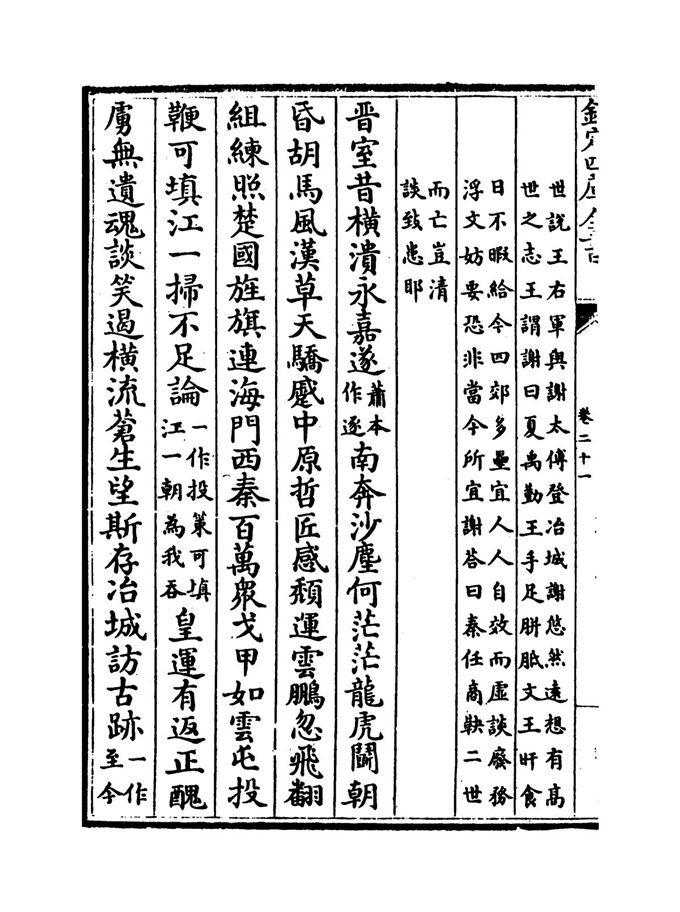 欽定四庫全書
卷二十一
世說王右軍與謝太傅登冶城謝悠然遠想有髙
世之志王謂謝曰夏禹勤王手足胼胝文王旰食
日不暇給今四郊多壘宜人人自效而虛談廢務
浮文妨要恐非當今所宜謝答曰秦任商鞅二世
而亡豈清
談致患耶
晋室昔横潰永嘉遂蕭本作逐南奔沙塵何茫茫龍虎鬭朝
昏胡馬風漢草天驕蹙中原哲匠感頽運雲鵬忽飛翻
組練照楚國旌旗連海門西秦百萬衆戈甲如雲屯投
鞭可填江一掃不足論一作投策可填江一朝為我吞皇運有返正醜
虜無遺魂談笑遏横流蒼生望斯存冶城訪古跡一作至今